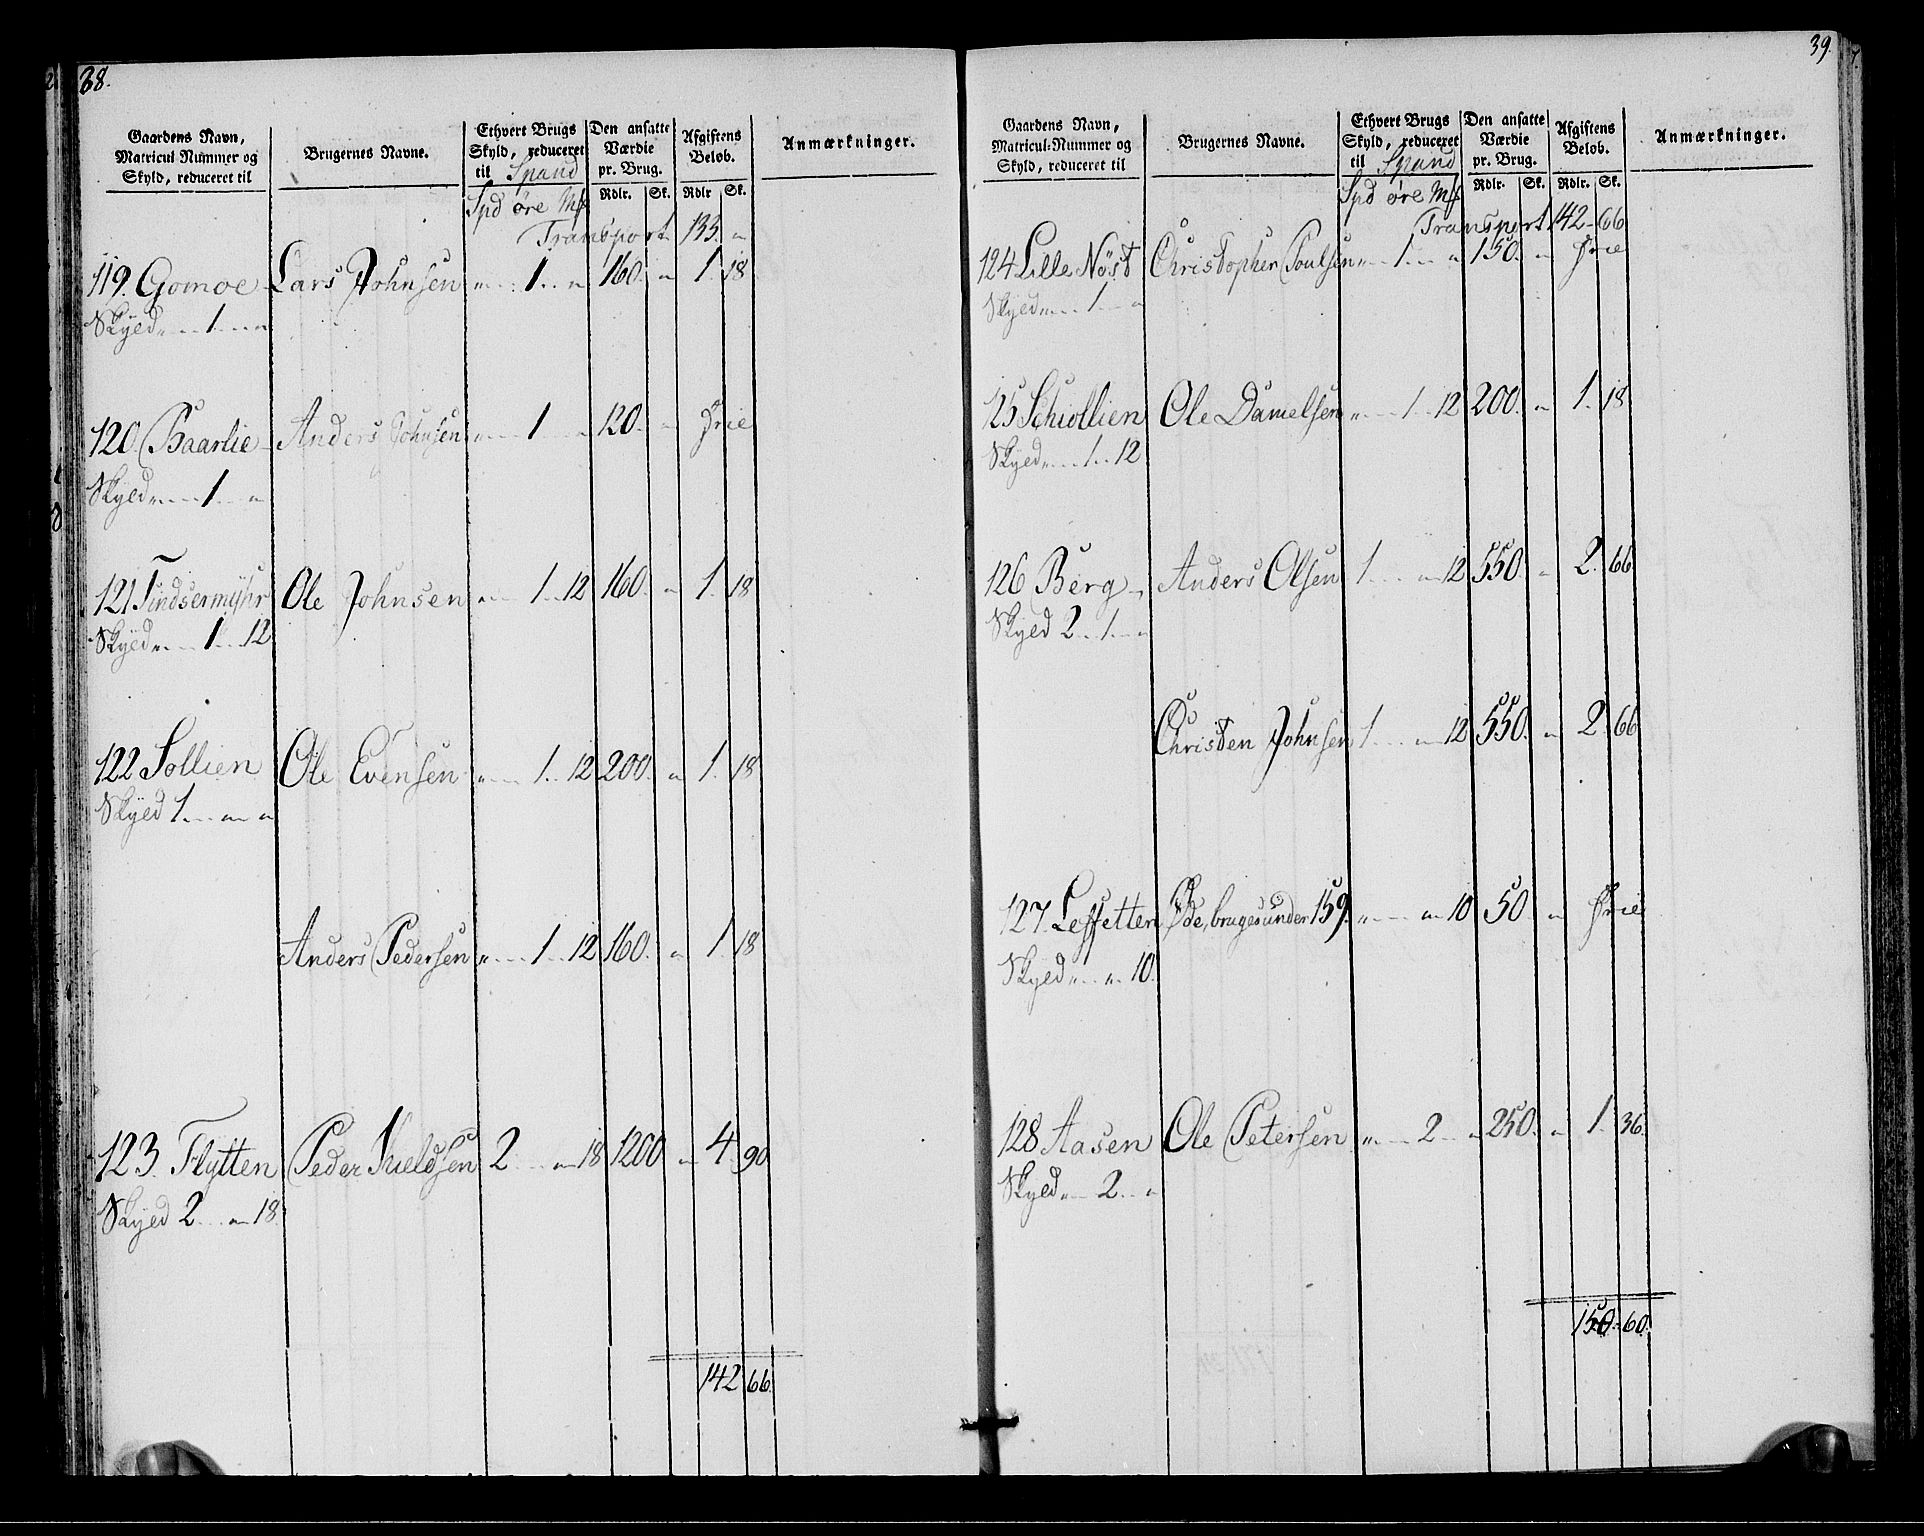 38.
Gaardens Navn, Matricul Nummer og Skyld, reduceret til | Brugernes Navne. | Ethvert Brugs Skyld, reduceret til Spand | Den ansatte Værdie pr. Brug. | Afgiftens Beløb. | Anmærkninger.
Spd øre Mk | Rdlr. | Sk. | Rdlr | Sk.
Transport 133. „
119. Gomoe Lars Johnsen „ 1 „ 160. „ 1. 18
Skyld „ 1 „
120. Baarlie Anders Johnsen „ 1 „ 120. „ Frie
Skyld „ 1 „
121 Tindsermyhr Ole Johnsen „ 1 12 160. „ 1. 18
Skyld „ 1 12
122 Sollien Ole Evensen „ 1 12 200. „ 1. 18
Skyld 1 „ „
Anders Pedersen „ 1 12 160. „ 1. 18
123. Flytten Peder Kieldsen 2 „ 18 1200 „ 4. 90
Skyld 2 „ 18.
142 66.
39.
Gaardens Navn, Matricul-Nummer og Skyld, reduceret til | Brugernes Navne. | Ethvert Brugs Skyld, reduceret til Spand | Den ansatte Værdie pr. Brug. | Afgiftens Beløb. | Anmærkninger.
Spd øre Mk | Rdlr. | Sk. | Rdlr. | Sk.
Transport 142 66
124 Lille Nöst Christopher Poulsen „ 1 „ 150. „ Frie
Skyld „ 1 „
125 Schiollien Ole Danielsen „ 1 12 200. „ 1. 18
Skyld „ 1 12
126 Berg Anders Olsen 1 „ 12 550. „ 2. 66
Skyld 2 1 „
Christen Johnsen 1 „ 12 550. „ 2. 66
127. Leffsetten Øde, bruges under 159. „ „ 10 50. „ Frie
Skyld „ „ 10.
128 Aasen Ole Petersen „ 2 „ 250. „ 1. 36.
Skyld „ 2 „
150. 60.